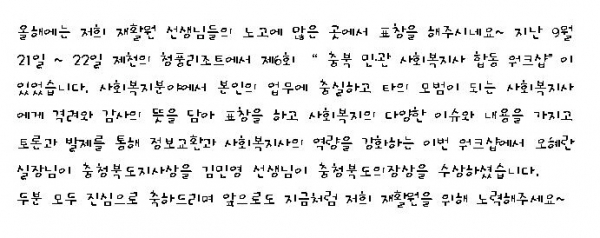 올해에는 저희 재활원 선생님들의 노고에 많은 곳에서 표창을 해주시네요~ 지난 9월
21일 ~ 22일 제천의 청풍리조트에서 제6회 “ 충북 민·관 사회복지사 합동 워크샵” 이
있었습니다. 사회복지분야에서 본인의 업무에 충실하고 타의 모범이 되는 사회복지사
에게 격려와 감사의 뜻을 담아 표창을 하고 사회복지의 다양한 이슈와 내용을 가지고
토론과 발제를 통해 정보교환과 사회복지사의 역량을 강화하는 이번 워크샵에서 오혜란
실장님이 충청북도지사상을 김민영 선생님이 충청북도의장상을 수상하셨습니다.
두분 모두 진심으로 축하드리며 앞으로도 지금처럼 저희 재활원을 위해 노력해주세요~